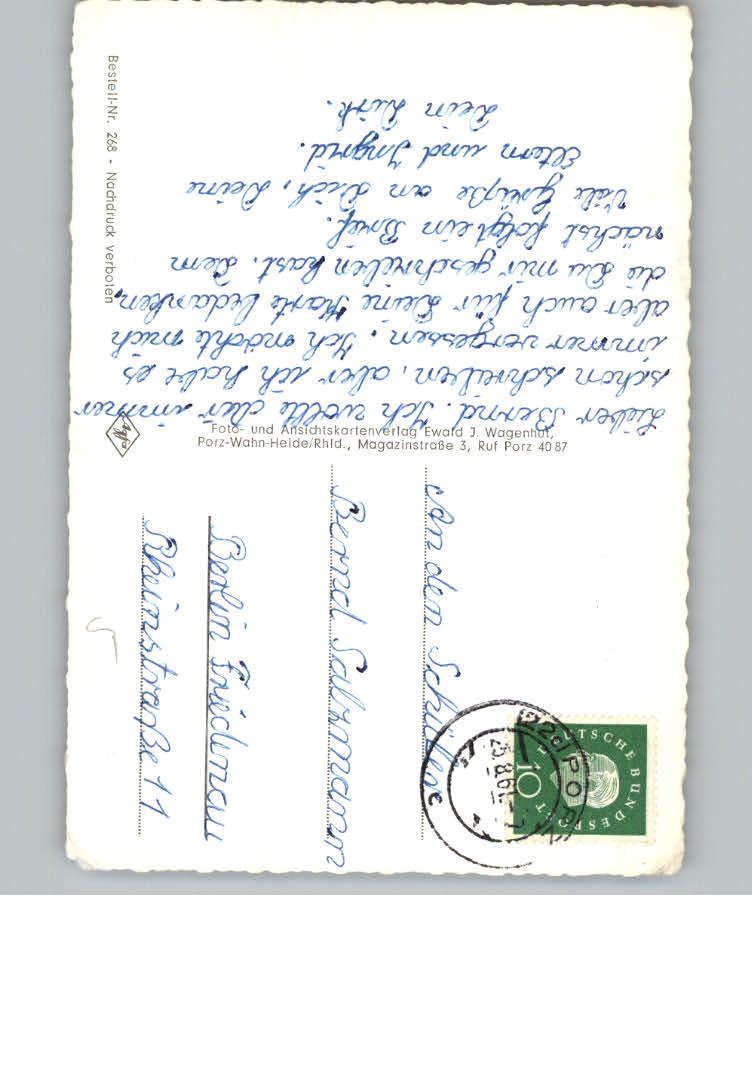 Lieber Bernd. Ich wollte dir immer
schon schreiben, aber ich habe es
immer vergessen. Ich möchte mich
aber auch für Deine Karte bedanken,
die Du mir geschrieben hast. Dem
nächst folgt ein Brief.
Viele Grüße an Dich, Deine
Eltern und Ingrid.
Dein Dirk.
An den Schüler
Bernd Salzmann
Berlin Friedenau
Rheinstraße 11
Foto- und Ansichtskartenverlag Ewald J. Wagenhut,
Porz-Wahn-Heide/Rhld., Magazinstraße 3, Ruf Porz 40 87
Bestell-Nr. 268 - Nachdruck verboten
Agfa
DEUTSCHE BUNDESPOST
10
(22c) PORZ
25.8.61